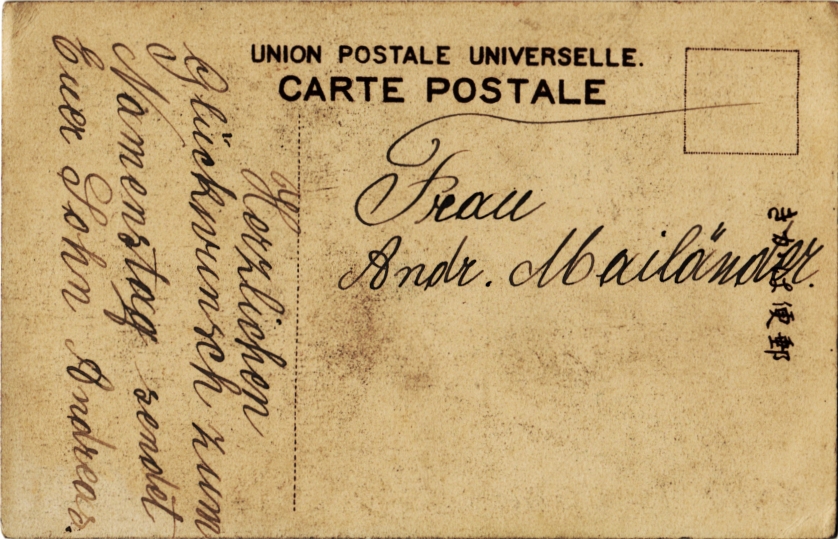 UNION POSTALE UNIVERSELLE.
CARTE POSTALE
Herzlichen
Glückwunsch zum
Namenstag sendet
Euer Sohn Andreas
Frau
Andr. Mailänder.
きかは便郵